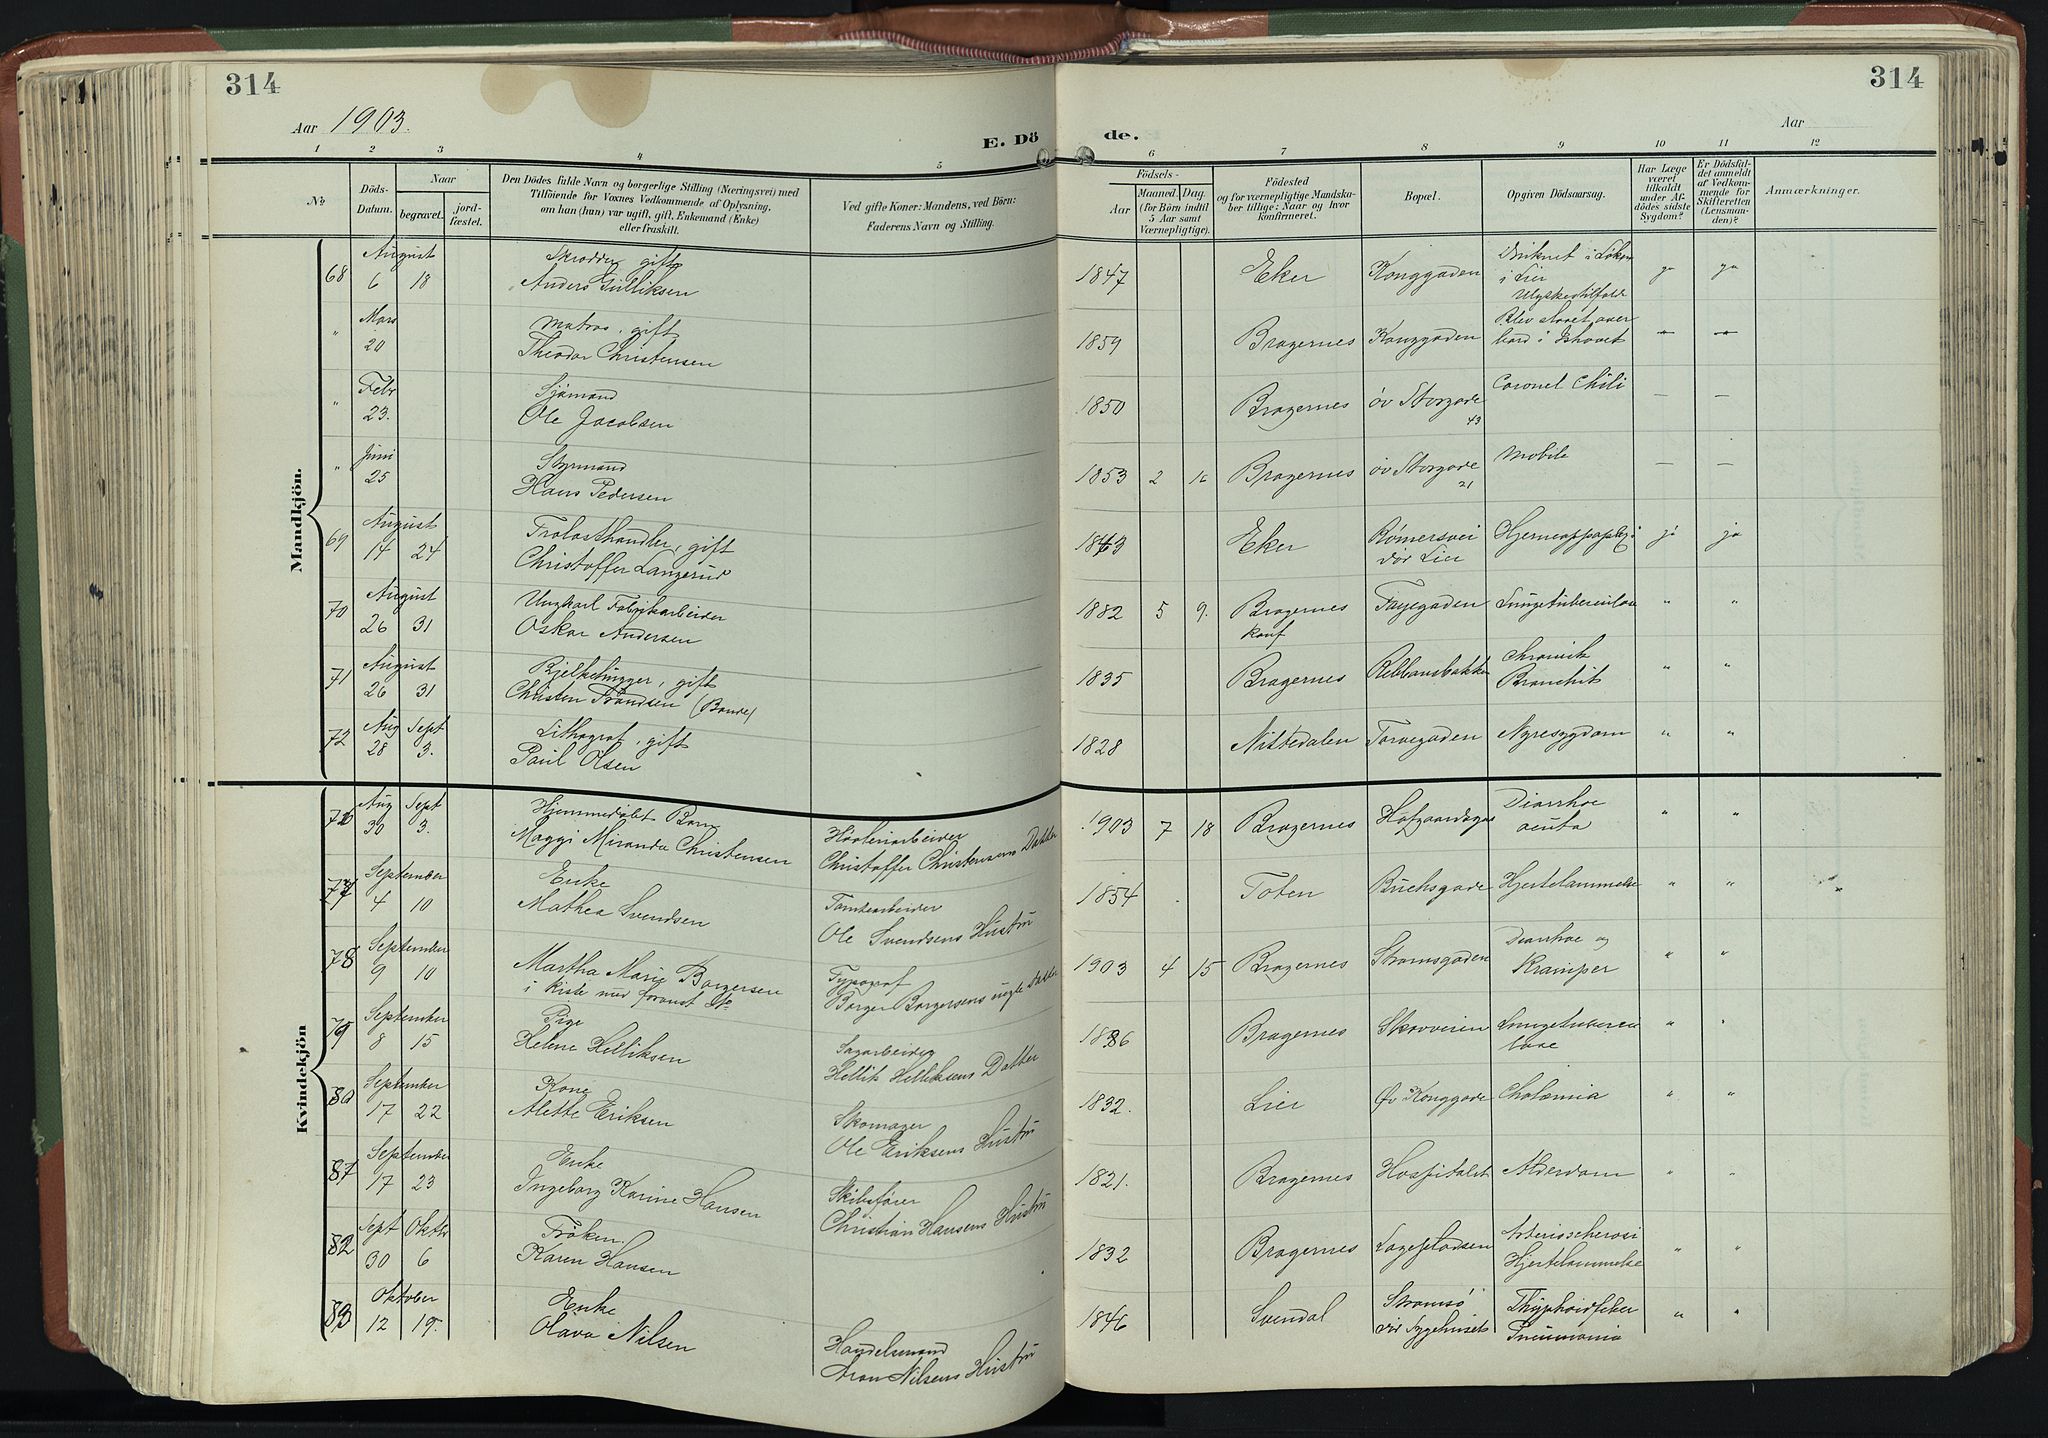 314
314
Aar 1903.
E. Döde.
Aar
1 2 3 4 5 6 7 8 9 10 11 12
No
Döds-Datum.
Naar
begravet.
jord-fæstet.
Den Dödes fulde Navn og borgerlige Stilling (Næringsvei) med
Tilföiende for Voxnes Vedkommende af Oplysning,
om han (hun) var ugift, gift, Enkemand (Enke)
eller fraskilt.
Ved gifte Koner: Mandens, ved Börn:
Faderens Navn og Stilling.
Födsels-
Aar
Maaned.
Dag.
(for Börn indtil
5 Aar samt
Værnepligtige).
Födested
og for værnepligtige Mandska-
ber tillige: Naar og hvor
konfirmeret.
Bopæl.
Opgiven Dödsaarsag.
Har Læge
været
tilkaldt
under Af-
dödes sidste
Sygdom?
Er Dödsfal-
det anmeldt
af Vedkom-
mende for
Skifteretten
(Lensman-
den)?
Anmærkninger.
Mandkjön.
68 August 6 18 Skrædder gift
Anders Gulliksen
1847 Eker Konggaden Druknet i
i Lier
Ulykkestilfælde ja ya
" Mars 20 Matros, gift
Theodor Christensen
1859 Bragernes Konggaden Blev slaaet over
bord i Ishavet " "
" Febr 23. Sjømand
Ole Jacobsen
1850 Bragernes øv Storgade 43 Coronel Chili — —
" Juni 25 Styrmand
Hans Pedersen
1853 2 16 Bragernes øv Storgade 21 Mobile — —
69 August 14 24 Trælasthandler, gift
Christoffer Langerud
Eker Rømersvei
ved Lier ja ja
70 August 26 31 Ungkarl Fabrikarbeider
Oskar Andersen
1882 5 9. Bragernes
konf Fayegaden Lungetuberculose " "
71 August 26 31 gift
Christen Trondsen
1835 Bragernes Rebbansbakken Chronisk
Bronchit " "
72 Aug 28 Sept 3. Lithograf, gift
Paul Olsen
1828 Nittedalen Torvegaden Nyresygdom " "
Kvindekjön
Aug 30 Sept 3. Hjemmedøbt Barn
Maggi Miranda Christensen
Christoffer Christensens Datter
1903 7 18 Bragernes Diarrhoe
acuta " "
77 September 4 10 Enke
Mathea Svendsen
Tomtearbeider
Ole Svendsens Hustru
1854 Toten Buchsgade Hjertelammelse " "
78 September 9 10 Martha Marie Borgersen
Typograf
Borger Borgersens uegte Datter
1903 4 15 Bragernes Strømsgaden Diarrhoe og
Kramper " "
79 September 8 15 Pige
Helene Helliksen
Sagarbeider
Hellik Helliksens Datter
1886 Bragernes Skovveien Lungetubercu
lose " "
80 September 17 22 Kone
Alette Eriksen
Skomager
Ole Eriksens Hustru
1832. Lier Øv Konggade Cholæmia " "
81 September 17 23 Enke
Ingeborg Karine Hansen
Skibsfører
Christian Hansens Hustru
1821. Bragernes Hospitalet Alderdom " "
82 Sept 30 Oktbr 6 Frøken.
Karen Hansen
1832 Bragernes Løgepladsen Arterioschlerosi
Hjertelammelse " "
83 Oktober 12 19. Enke
Olava Nilsen
Handelsmand
Aron Nilsens Hustru
1846 Svendal Strømsø
ved Sygehuset Thyphoidfeber
Pneumonia " "